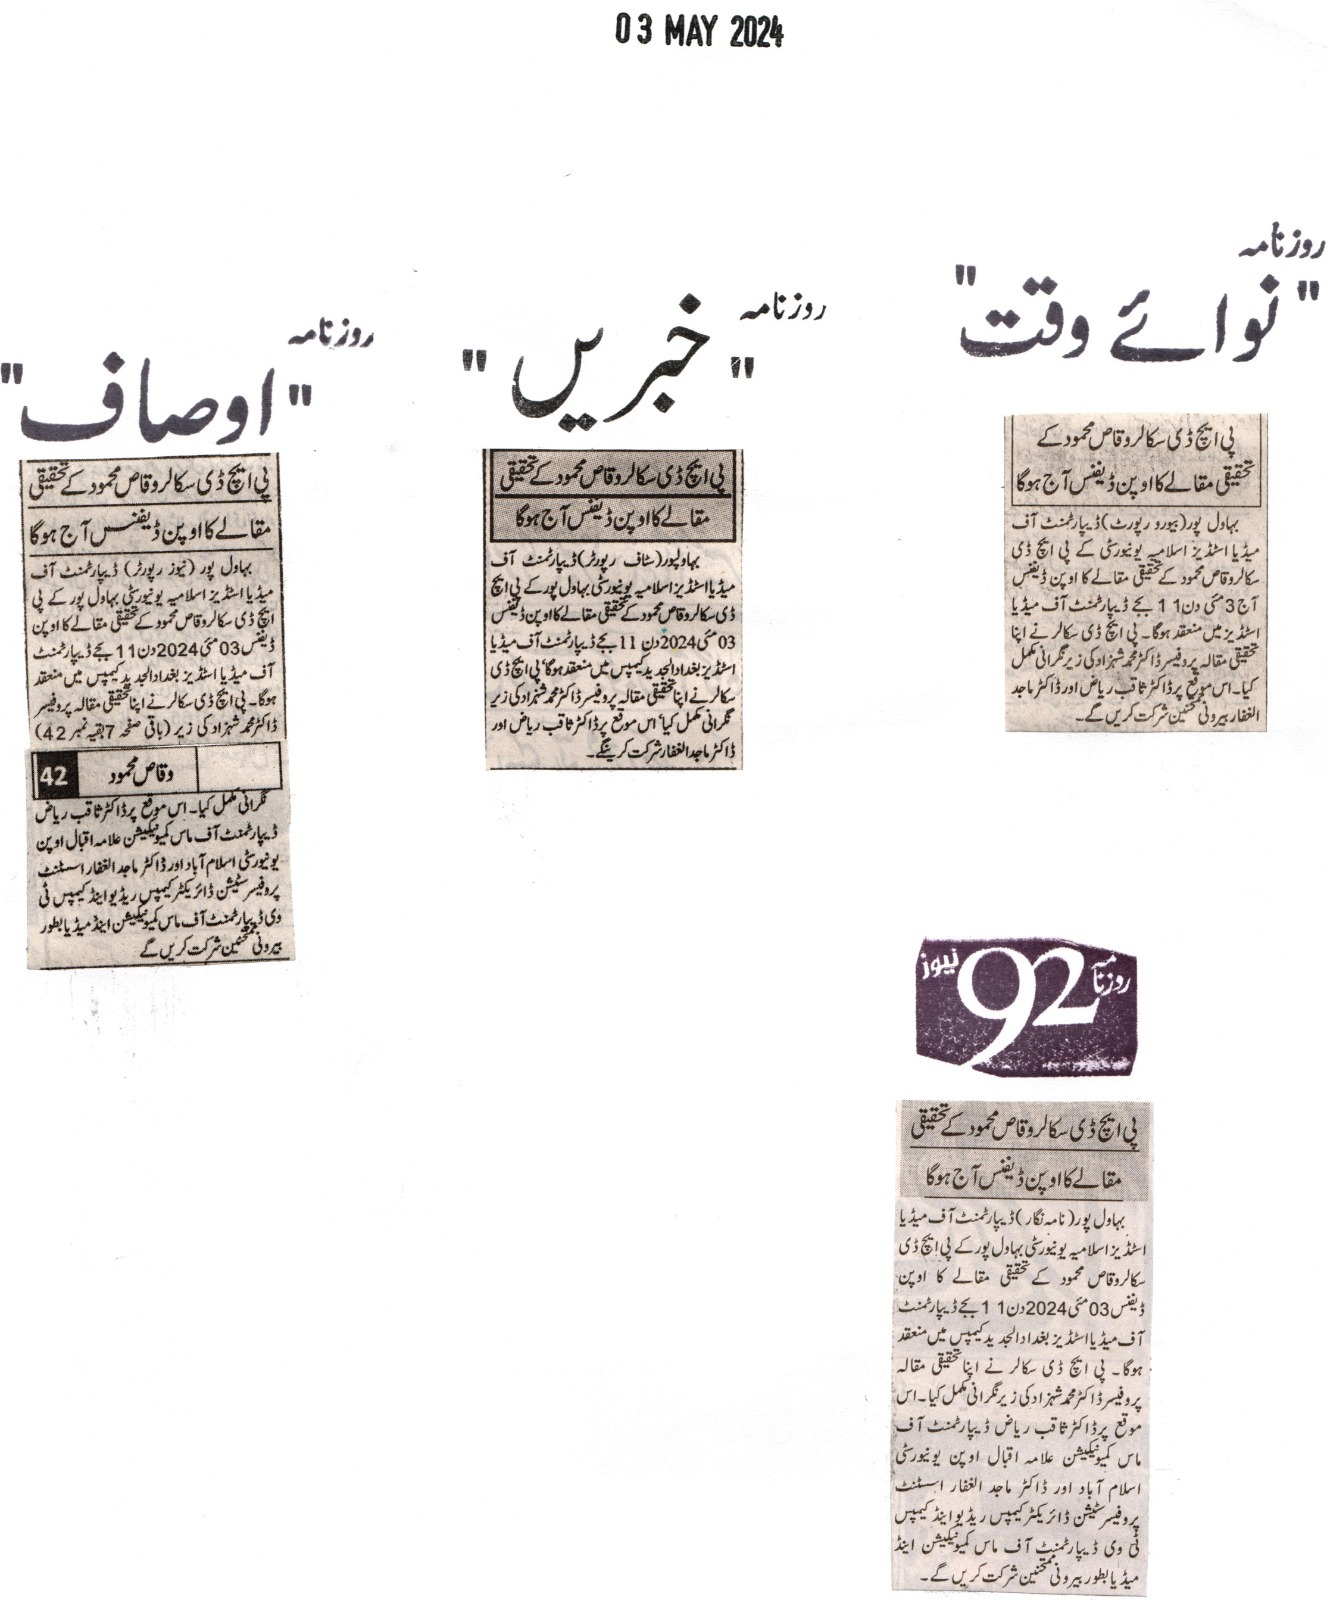 03 MAY 2024
روزنامہ
"نوائے وقت"
پی ایچ ڈی سکالر وقاص محمود کے
تحقیقی مقالے کا اوپن ڈیفنس آج ہوگا
بہاول پور (بیورو رپورٹ) ڈیپارٹمنٹ آف
میڈیا اسٹڈیز اسلامیہ یونیورسٹی کے پی ایچ ڈی
سکالر وقاص محمود کے تحقیقی مقالے کا اوپن ڈیفنس
آج 3 مئی دن 11 بجے ڈیپارٹمنٹ آف میڈیا
اسٹڈیز میں منعقد ہوگا۔ پی ایچ ڈی سکالر نے اپنا
تحقیقی مقالہ پروفیسر ڈاکٹر محمد شہزاد کی زیر نگرانی مکمل
کیا۔ اس موقع پر ڈاکٹر ثاقب ریاض اور ڈاکٹر ماجد
الغفار بیرونی ممتحنین شرکت کریں گے۔
روزنامہ
"خبریں"
پی ایچ ڈی سکالر وقاص محمود کے تحقیقی
مقالے کا اوپن ڈیفنس آج ہوگا
بہاولپور (سٹاف رپورٹر) ڈیپارٹمنٹ آف
میڈیا اسٹڈیز اسلامیہ یونیورسٹی بہاول پور کے پی ایچ
ڈی سکالر وقاص محمود کے تحقیقی مقالے کا اوپن ڈیفنس
03 مئی 2024 دن 11 بجے ڈیپارٹمنٹ آف میڈیا
اسٹڈیز بغداد الجدید کیمپس میں منعقد ہوگا' پی ایچ ڈی
سکالر نے اپنا تحقیقی مقالہ پروفیسر ڈاکٹر محمد شہزاد کی زیر
نگرانی مکمل کیا' اس موقع پر ڈاکٹر ثاقب ریاض اور
ڈاکٹر ماجد الغفار شرکت کرینگے۔
روزنامہ
"اوصاف"
پی ایچ ڈی سکالر وقاص محمود کے تحقیقی
مقالے کا اوپن ڈیفنس آج ہوگا
بہاول پور (نیوز رپورٹر) ڈیپارٹمنٹ آف
میڈیا اسٹڈیز اسلامیہ یونیورسٹی بہاول پور کے پی
ایچ ڈی سکالر وقاص محمود کے تحقیقی مقالے کا اوپن
ڈیفنس 03 مئی 2024 دن 11 بجے ڈیپارٹمنٹ
آف میڈیا اسٹڈیز بغداد الجدید کیمپس میں منعقد
ہوگا۔ پی ایچ ڈی سکالر نے اپنا تحقیقی مقالہ پروفیسر
ڈاکٹر محمد شہزاد کی زیر (باقی صفحہ 7 بقیہ نمبر 42)
وقاص محمود 42
نگرانی مکمل کیا۔ اس موقع پر ڈاکٹر ثاقب ریاض
ڈیپارٹمنٹ آف ماس کمیونیکیشن علامہ اقبال اوپن
یونیورسٹی اسلام آباد اور ڈاکٹر ماجد الغفار اسسٹنٹ
پروفیسر سٹیشن ڈائریکٹر کیمپس ریڈیو اینڈ کیمپس ٹی
وی ڈیپارٹمنٹ آف ماس کمیونیکیشن اینڈ میڈیا بطور
بیرونی ممتحنین شرکت کریں گے
روزنامہ 92 نیوز
پی ایچ ڈی سکالر وقاص محمود کے تحقیقی
مقالے کا اوپن ڈیفنس آج ہوگا
بہاول پور (نامہ نگار) ڈیپارٹمنٹ آف میڈیا
اسٹڈیز اسلامیہ یونیورسٹی بہاول پور کے پی ایچ ڈی
سکالر وقاص محمود کے تحقیقی مقالے کا اوپن
ڈیفنس 03 مئی 2024 دن 11 بجے ڈیپارٹمنٹ
آف میڈیا اسٹڈیز بغداد الجدید کیمپس میں منعقد
ہوگا۔ پی ایچ ڈی سکالر نے اپنا تحقیقی مقالہ
پروفیسر ڈاکٹر محمد شہزاد کی زیر نگرانی مکمل کیا۔ اس
موقع پر ڈاکٹر ثاقب ریاض ڈیپارٹمنٹ آف
ماس کمیونیکیشن علامہ اقبال اوپن یونیورسٹی
اسلام آباد اور ڈاکٹر ماجد الغفار اسسٹنٹ
پروفیسر سٹیشن ڈائریکٹر کیمپس ریڈیو اینڈ کیمپس
ٹی وی ڈیپارٹمنٹ آف ماس کمیونیکیشن اینڈ
میڈیا بطور بیرونی ممتحنین شرکت کریں گے۔